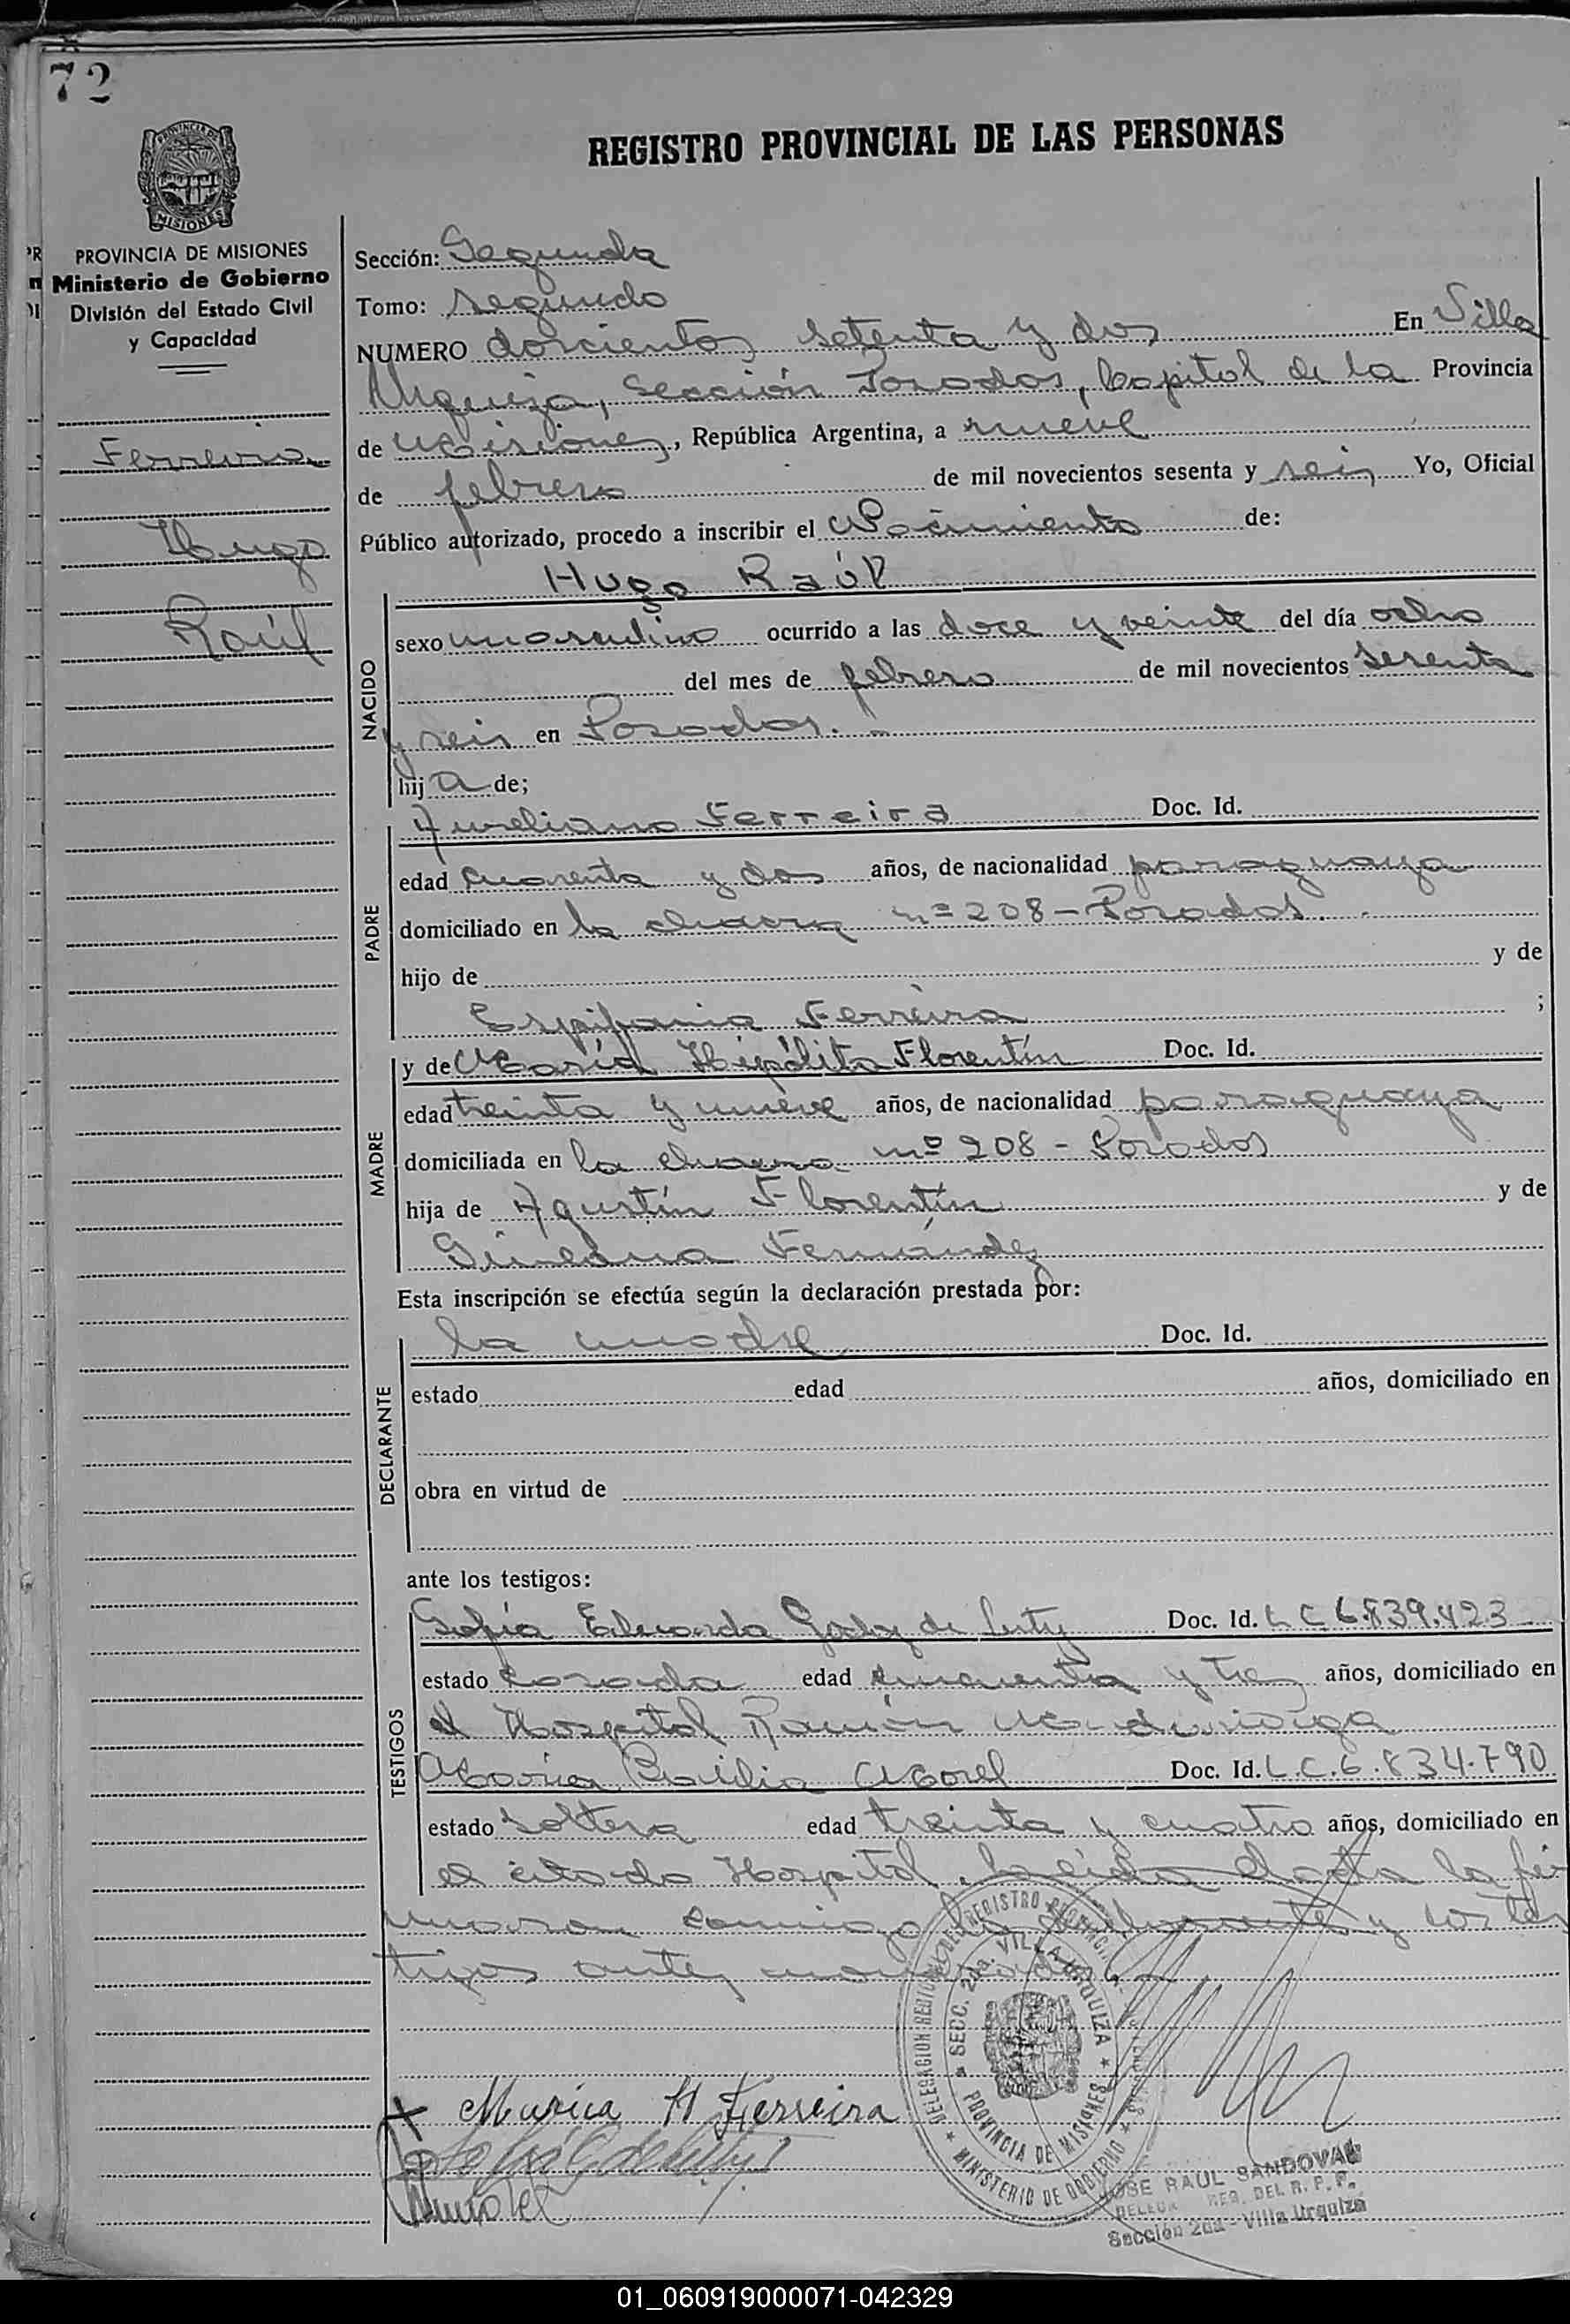 72
REGISTRO PROVINCIAL DE LAS PERSONAS
PROVINCIA DE MISIONES
Ministerio de Gobierno
División del Estado Civil
y Capacidad
Ferreira
Hugo
Raúl
Sección: Segunda
Tomo: segundo
NUMERO doscientos setenta y dos En Villa
Urquiza, Sección Posadas, Capital de la Provincia
de Misiones, República Argentina, a nueve
de febrero de mil novecientos sesenta y seis Yo, Oficial
Público autorizado, procedo a inscribir el Nacimiento de:
Hugo Raúl
NACIDO
sexo masculino ocurrido a las doce y veinte del día ocho
del mes de febrero de mil novecientos sesenta
y seis en Posadas.
hij a de;
Aureliano Ferreira Doc. Id.
PADRE
edad cuarenta y dos años, de nacionalidad paraguaya
domiciliado en la chacra nº 208 - Posadas.
hijo de y de
Espifania Ferreira ;
y de María Hipólita Florentín Doc. Id.
MADRE
edad treinta y nueve años, de nacionalidad paraguaya
domiciliada en la chacra nº 208 - Posadas
hija de Agustín Florentín y de
Fernández
Esta inscripción se efectúa según la declaración prestada por:
DECLARANTE
la madre Doc. Id.
estado edad años, domiciliado en
obra en virtud de
ante los testigos:
TESTIGOS
Sofía Eduarda Godoy de Doc. Id. L C 6.839.423
estado casada edad cincuenta y tres años, domiciliado en
el Hospital Ramón Madariaga
María Basilia Morel Doc. Id. L.C. 6.834.790
estado soltera edad treinta y cuatro años, domiciliado en
el citado Hospital. Leída el acta la fir
maron conmigo la declarante y los tes
tigos antes
SECC. 2da. VILLA URQUIZA
PROVINCIA DE MISIONES
MINISTERIO DE GOBIERNO
x Maria H Ferreira
JOSE RAUL SANDOVAL
REG. DEL R. P. P.
Sección 2da - Villa Urquiza
01_060919000071-042329